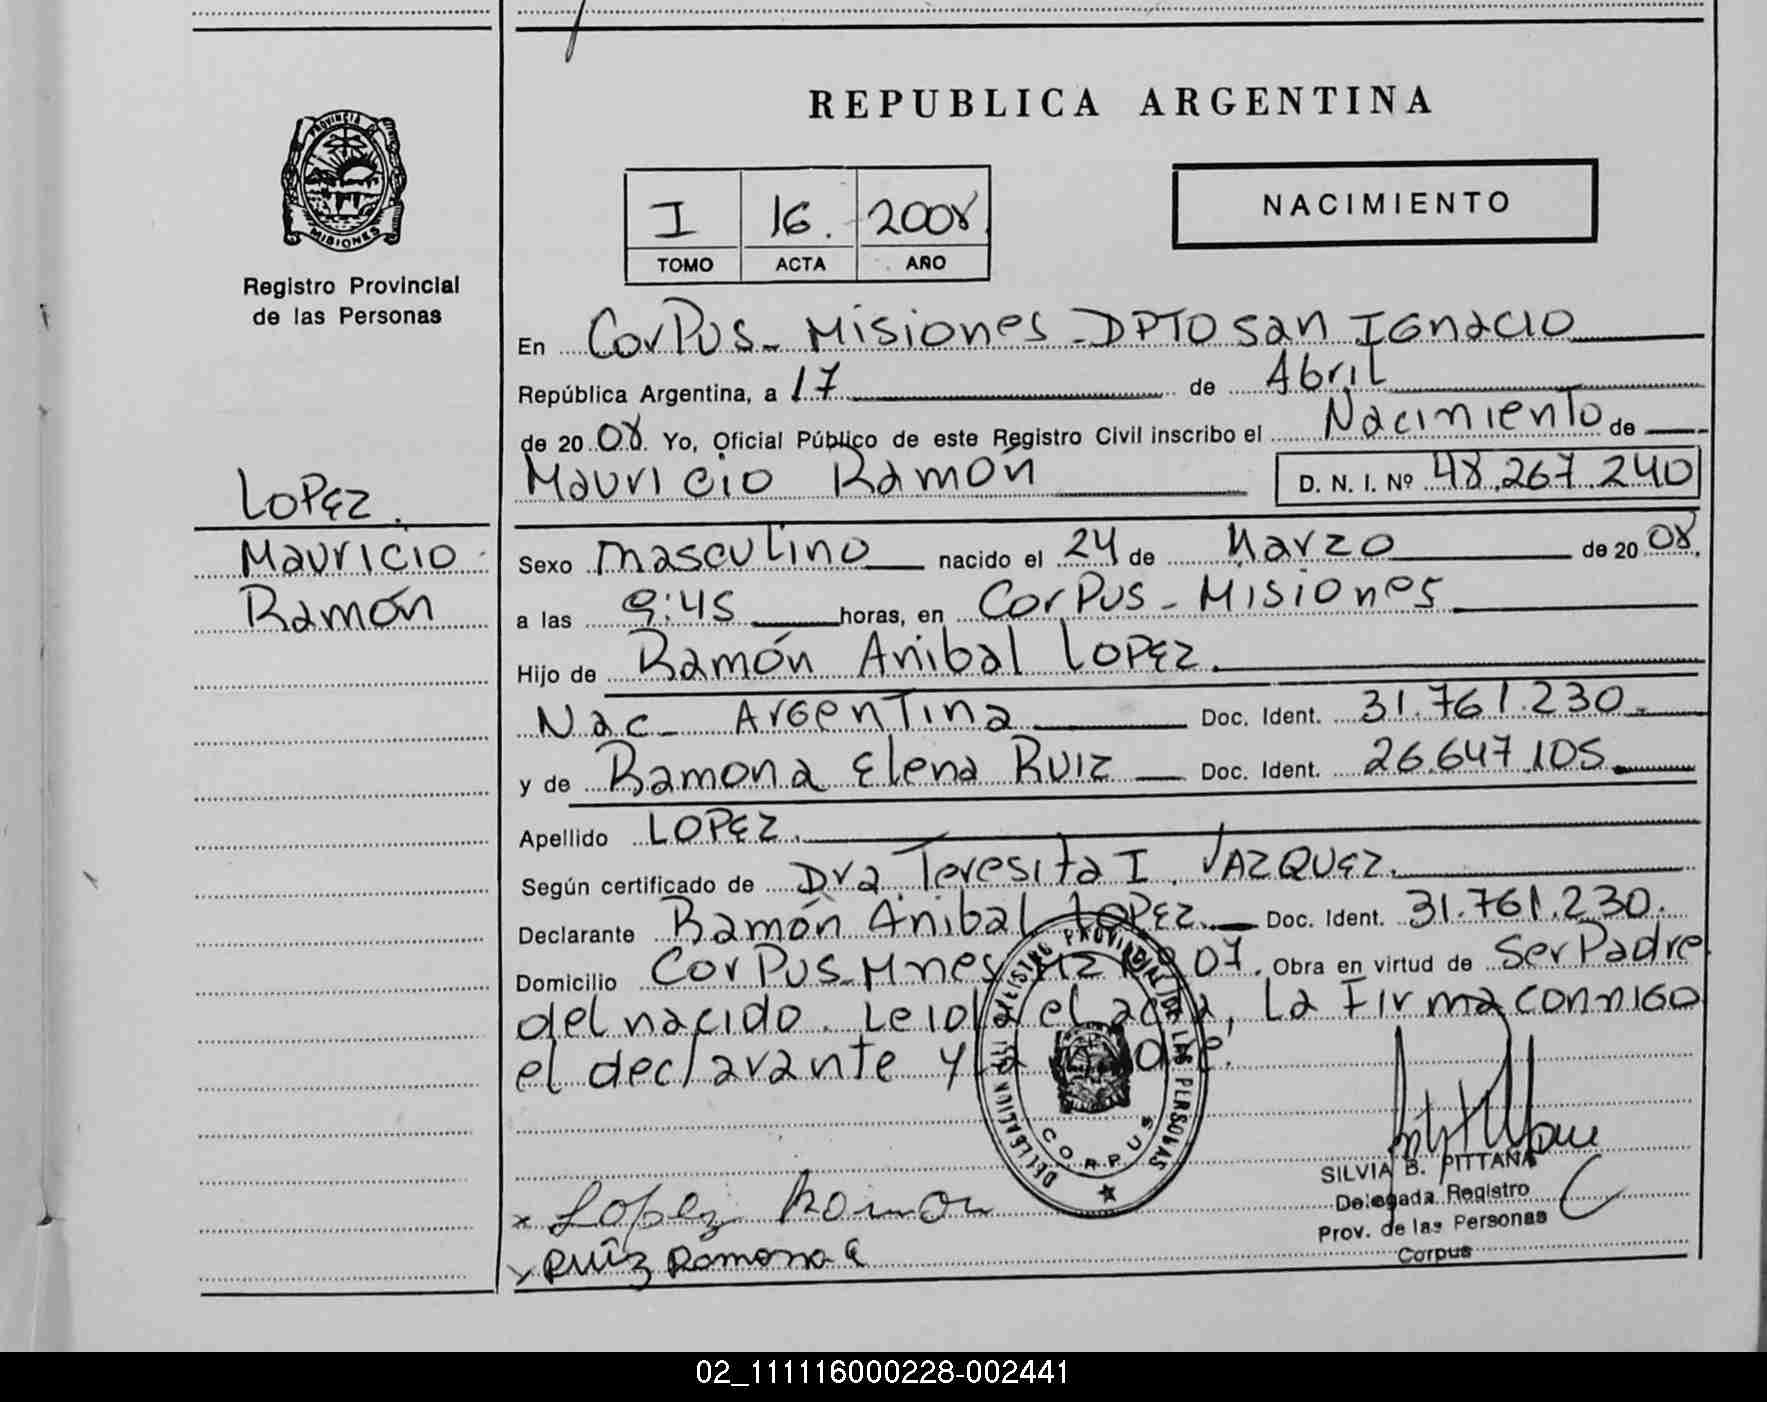 REPUBLICA ARGENTINA
PROVINCIA DE MISIONES
Registro Provincial
de las Personas
I 16. 2008
TOMO ACTA AÑO
NACIMIENTO
LOPEZ.
Mauricio
Ramón
En Corpus - Misiones - DPTO San Ignacio
República Argentina, a 17 de Abril
de 2008. Yo, Oficial Público de este Registro Civil inscribo el Nacimiento de
Mauricio Ramón D. N. I. Nº 48.267.240
Sexo Masculino nacido el 24 de Marzo de 2008.
a las 9:45 horas, en Corpus - Misiones
Hijo de Ramón Anibal Lopez.
Nac - Argentina Doc. Ident. 31.761.230.
y de Ramona Elena Ruiz Doc. Ident. 26.647.105.
Apellido LOPEZ.
Según certificado de Dra Teresita I. VAZQUEZ.
Declarante Ramón Anibal Lopez. Doc. Ident. 31.761.230.
Domicilio Corpus - Mnes Mz 07. Obra en virtud de Ser Padre
del nacido. Leida el acta, La Firma conmigo
el declarante y la Madre.
DELEGACION REGISTRO PROVINCIAL DE LAS PERSONAS
CORPUS
x Lopez Ramon
x Ruiz Ramona E
SILVIA B. PITTANA
Delegada Registro
Prov. de las Personas
Corpus
02_111116000228-002441